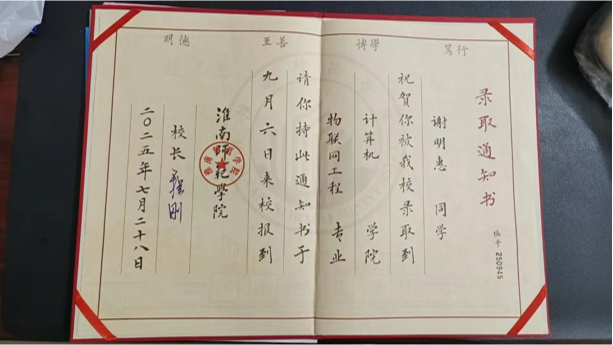 明德
至善
博學
笃行
录取通知书
编号 250945
谢明惠 同学
祝贺你被我校录取到
计算机 学院
物联网工程 专业
请你持此通知书于
九月六日来校报到
淮南师范学院
校长
二〇二五年七月二十八日